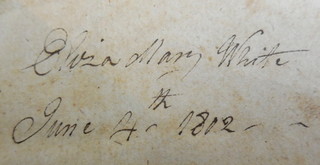 Eliza Mary White
June 4th - 1812 - -